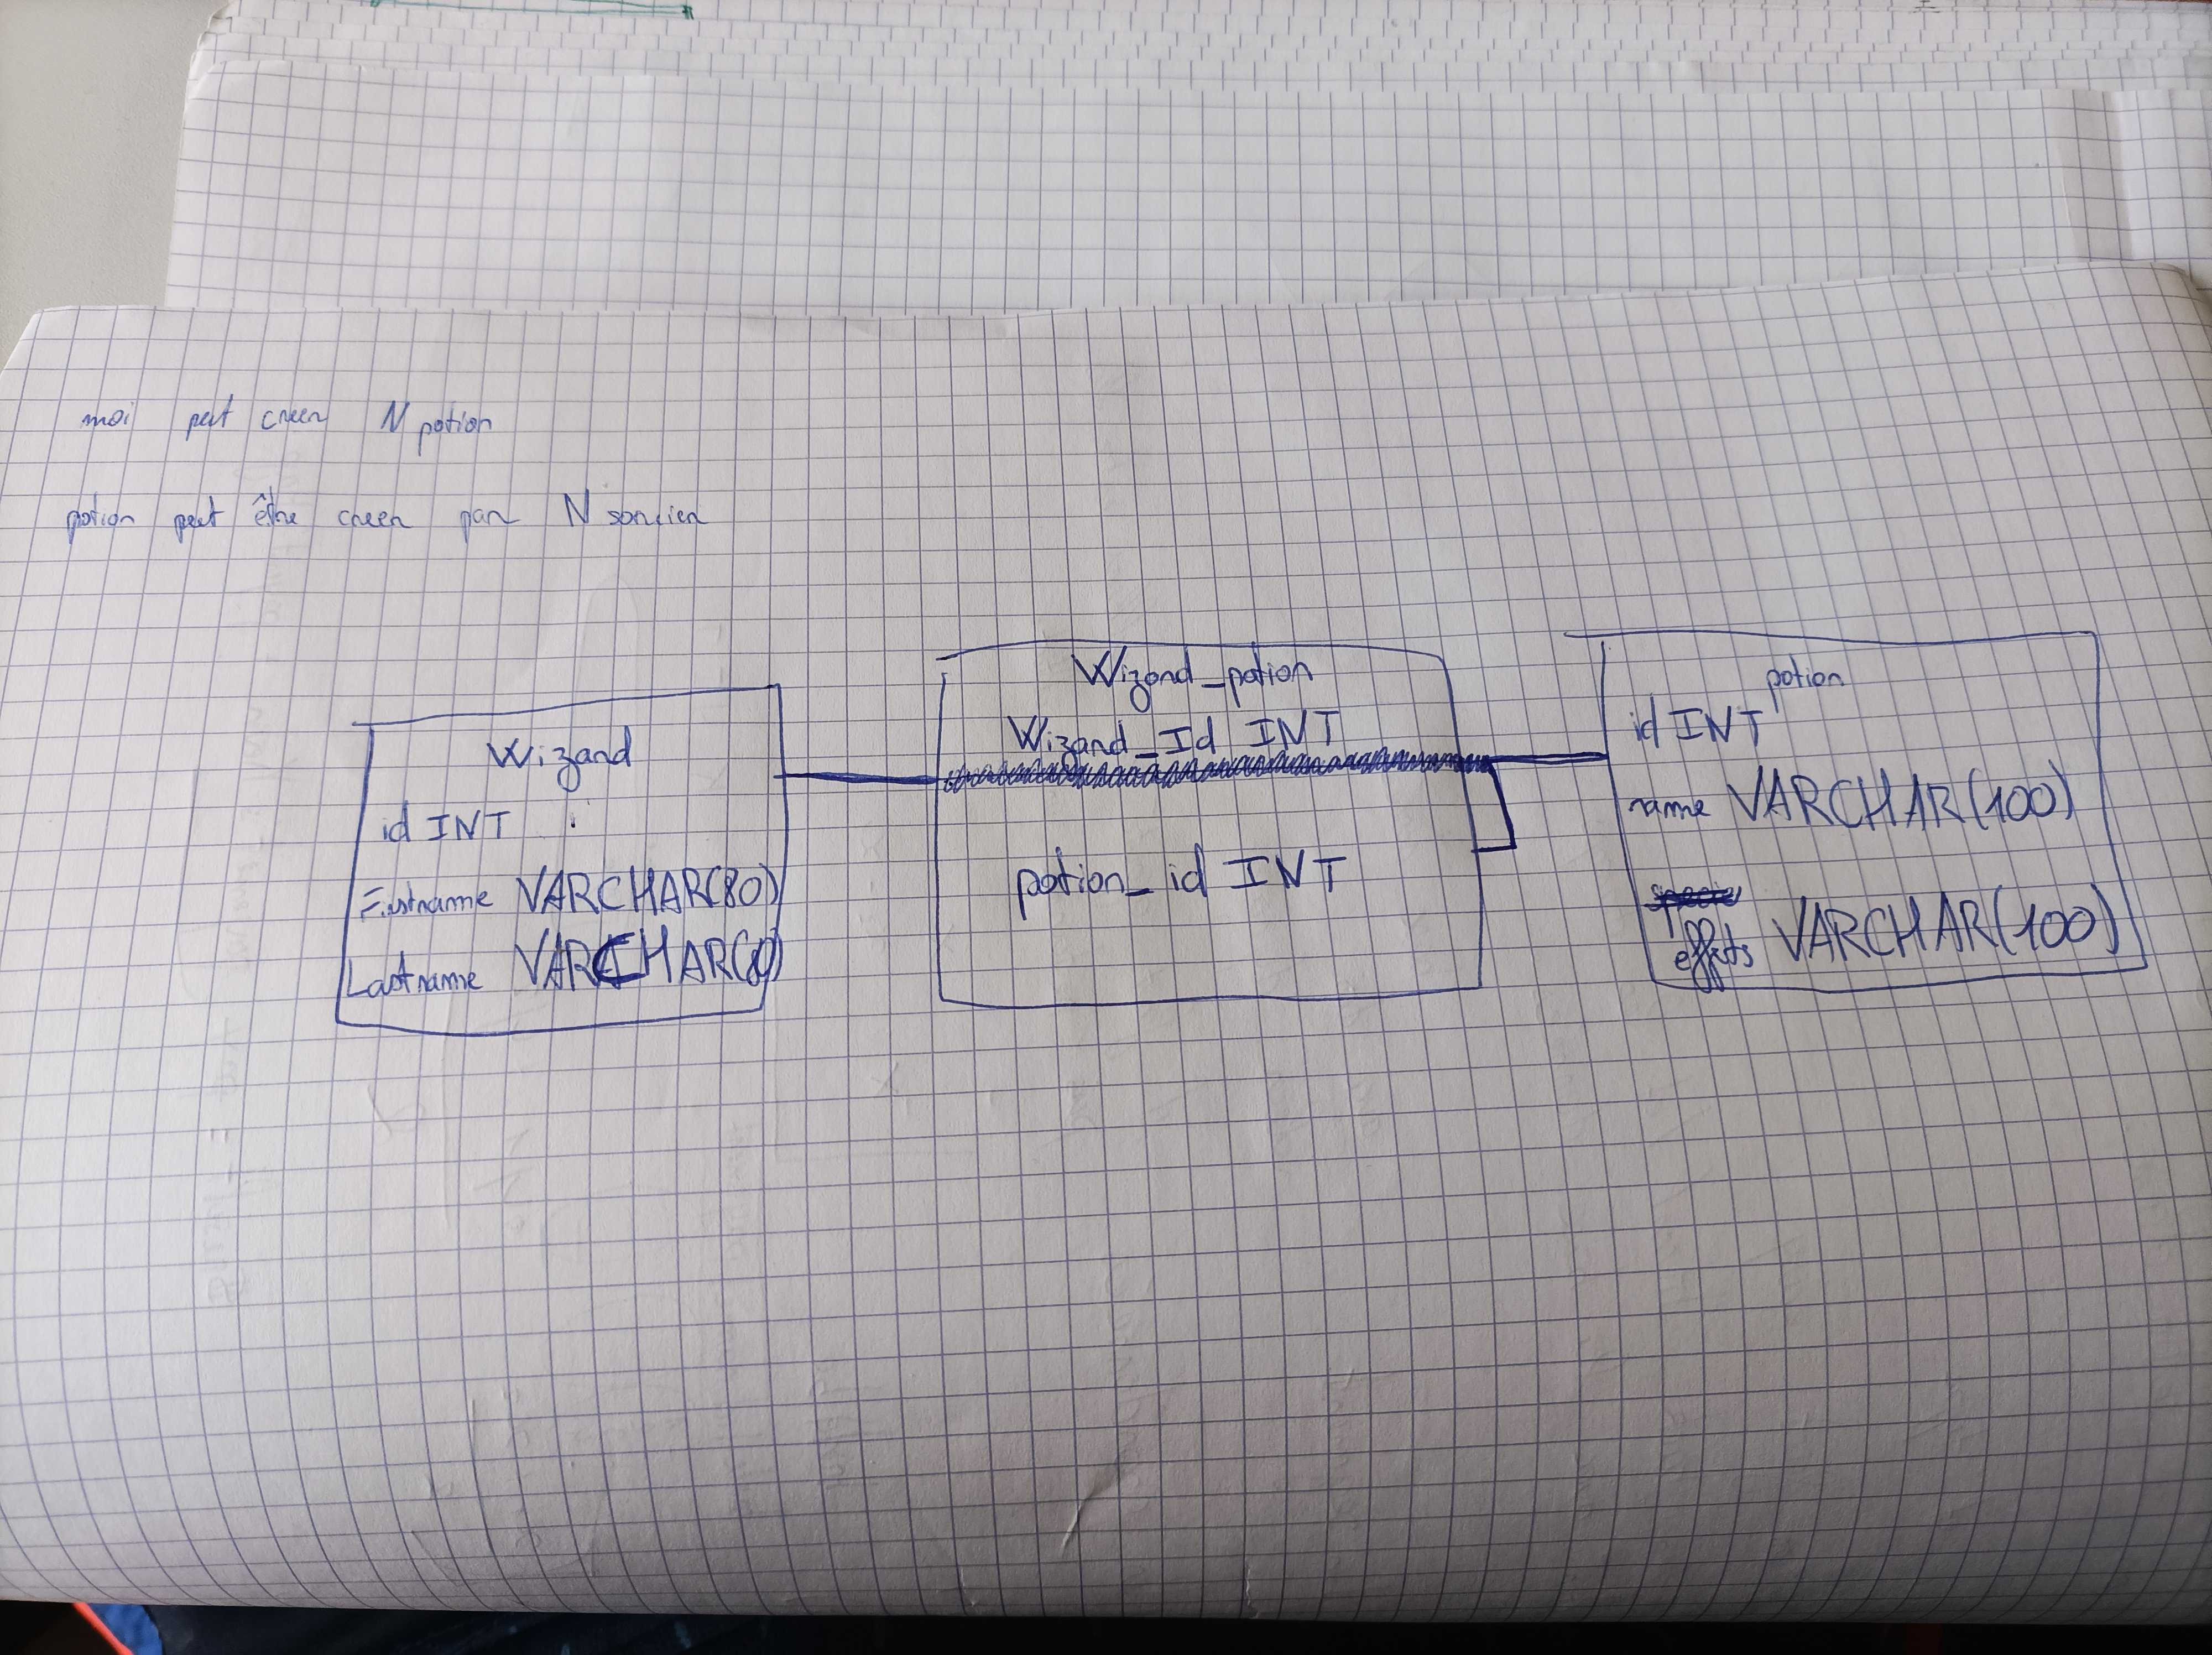 moi peut creer N potion
potion peut être creer par N sorcier
Wizard
id INT
Firstname VARCHAR(80)
Lastname VARCHAR(80)
Wizard_potion
Wizard_Id INT
potion_id INT
potion
id INT
name VARCHAR(100)
effets VARCHAR(100)